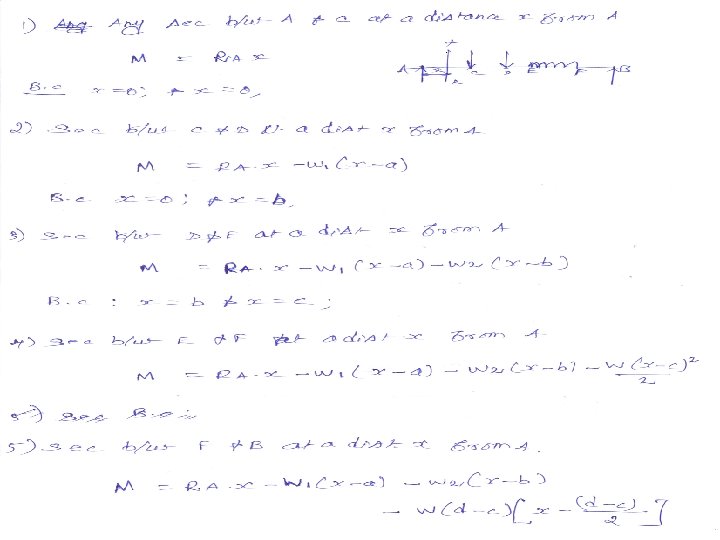 1) Any Sec b/w A & C at a distance x from A
M = RA x
B.C x=0; & x=a,
2) Sec b/w C & D at a dist x from A
M = RA.x - W1(x-a)
B.C. x=0; & x=b,
3) Sec b/w D & E at a dist x from A
M = RA.x - W1(x-a) - W2(x-b)
B.C : x = b & x = c ;
4) Sec b/w E & F at a dist x from A
M = RA.x - W1(x-a) - W2(x-b) - W(x-c)²/2
5) Sec b/w F & B at a dist x from A.
M = RA.x - W1(x-a) - W2(x-b)
- W(d-c)[x - (d-c)/2]